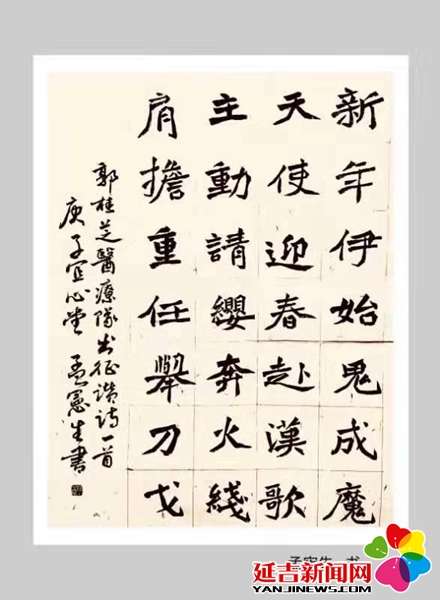 新年伊始鬼成魔
天使迎春赴漢歌
主動請纓奔火綫
肩擔重任舉刀戈
郭桂芝醫療隊出征讚诗一首
庚子宜心堂 孟憲生書
延吉新闻网
YANJINEWS.COM